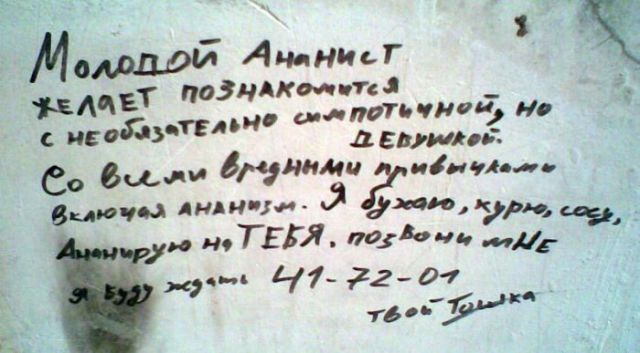 Молодой Ананист
желает познакомится
с необязательно симпотичной, но
девушкой.
Со всеми вредными привычками
включая ананизм. Я бухаю, курю, сосу,
Ананирую на ТЕБЯ. позвони мне
я буду ждать 41-72-01
твой Тошка